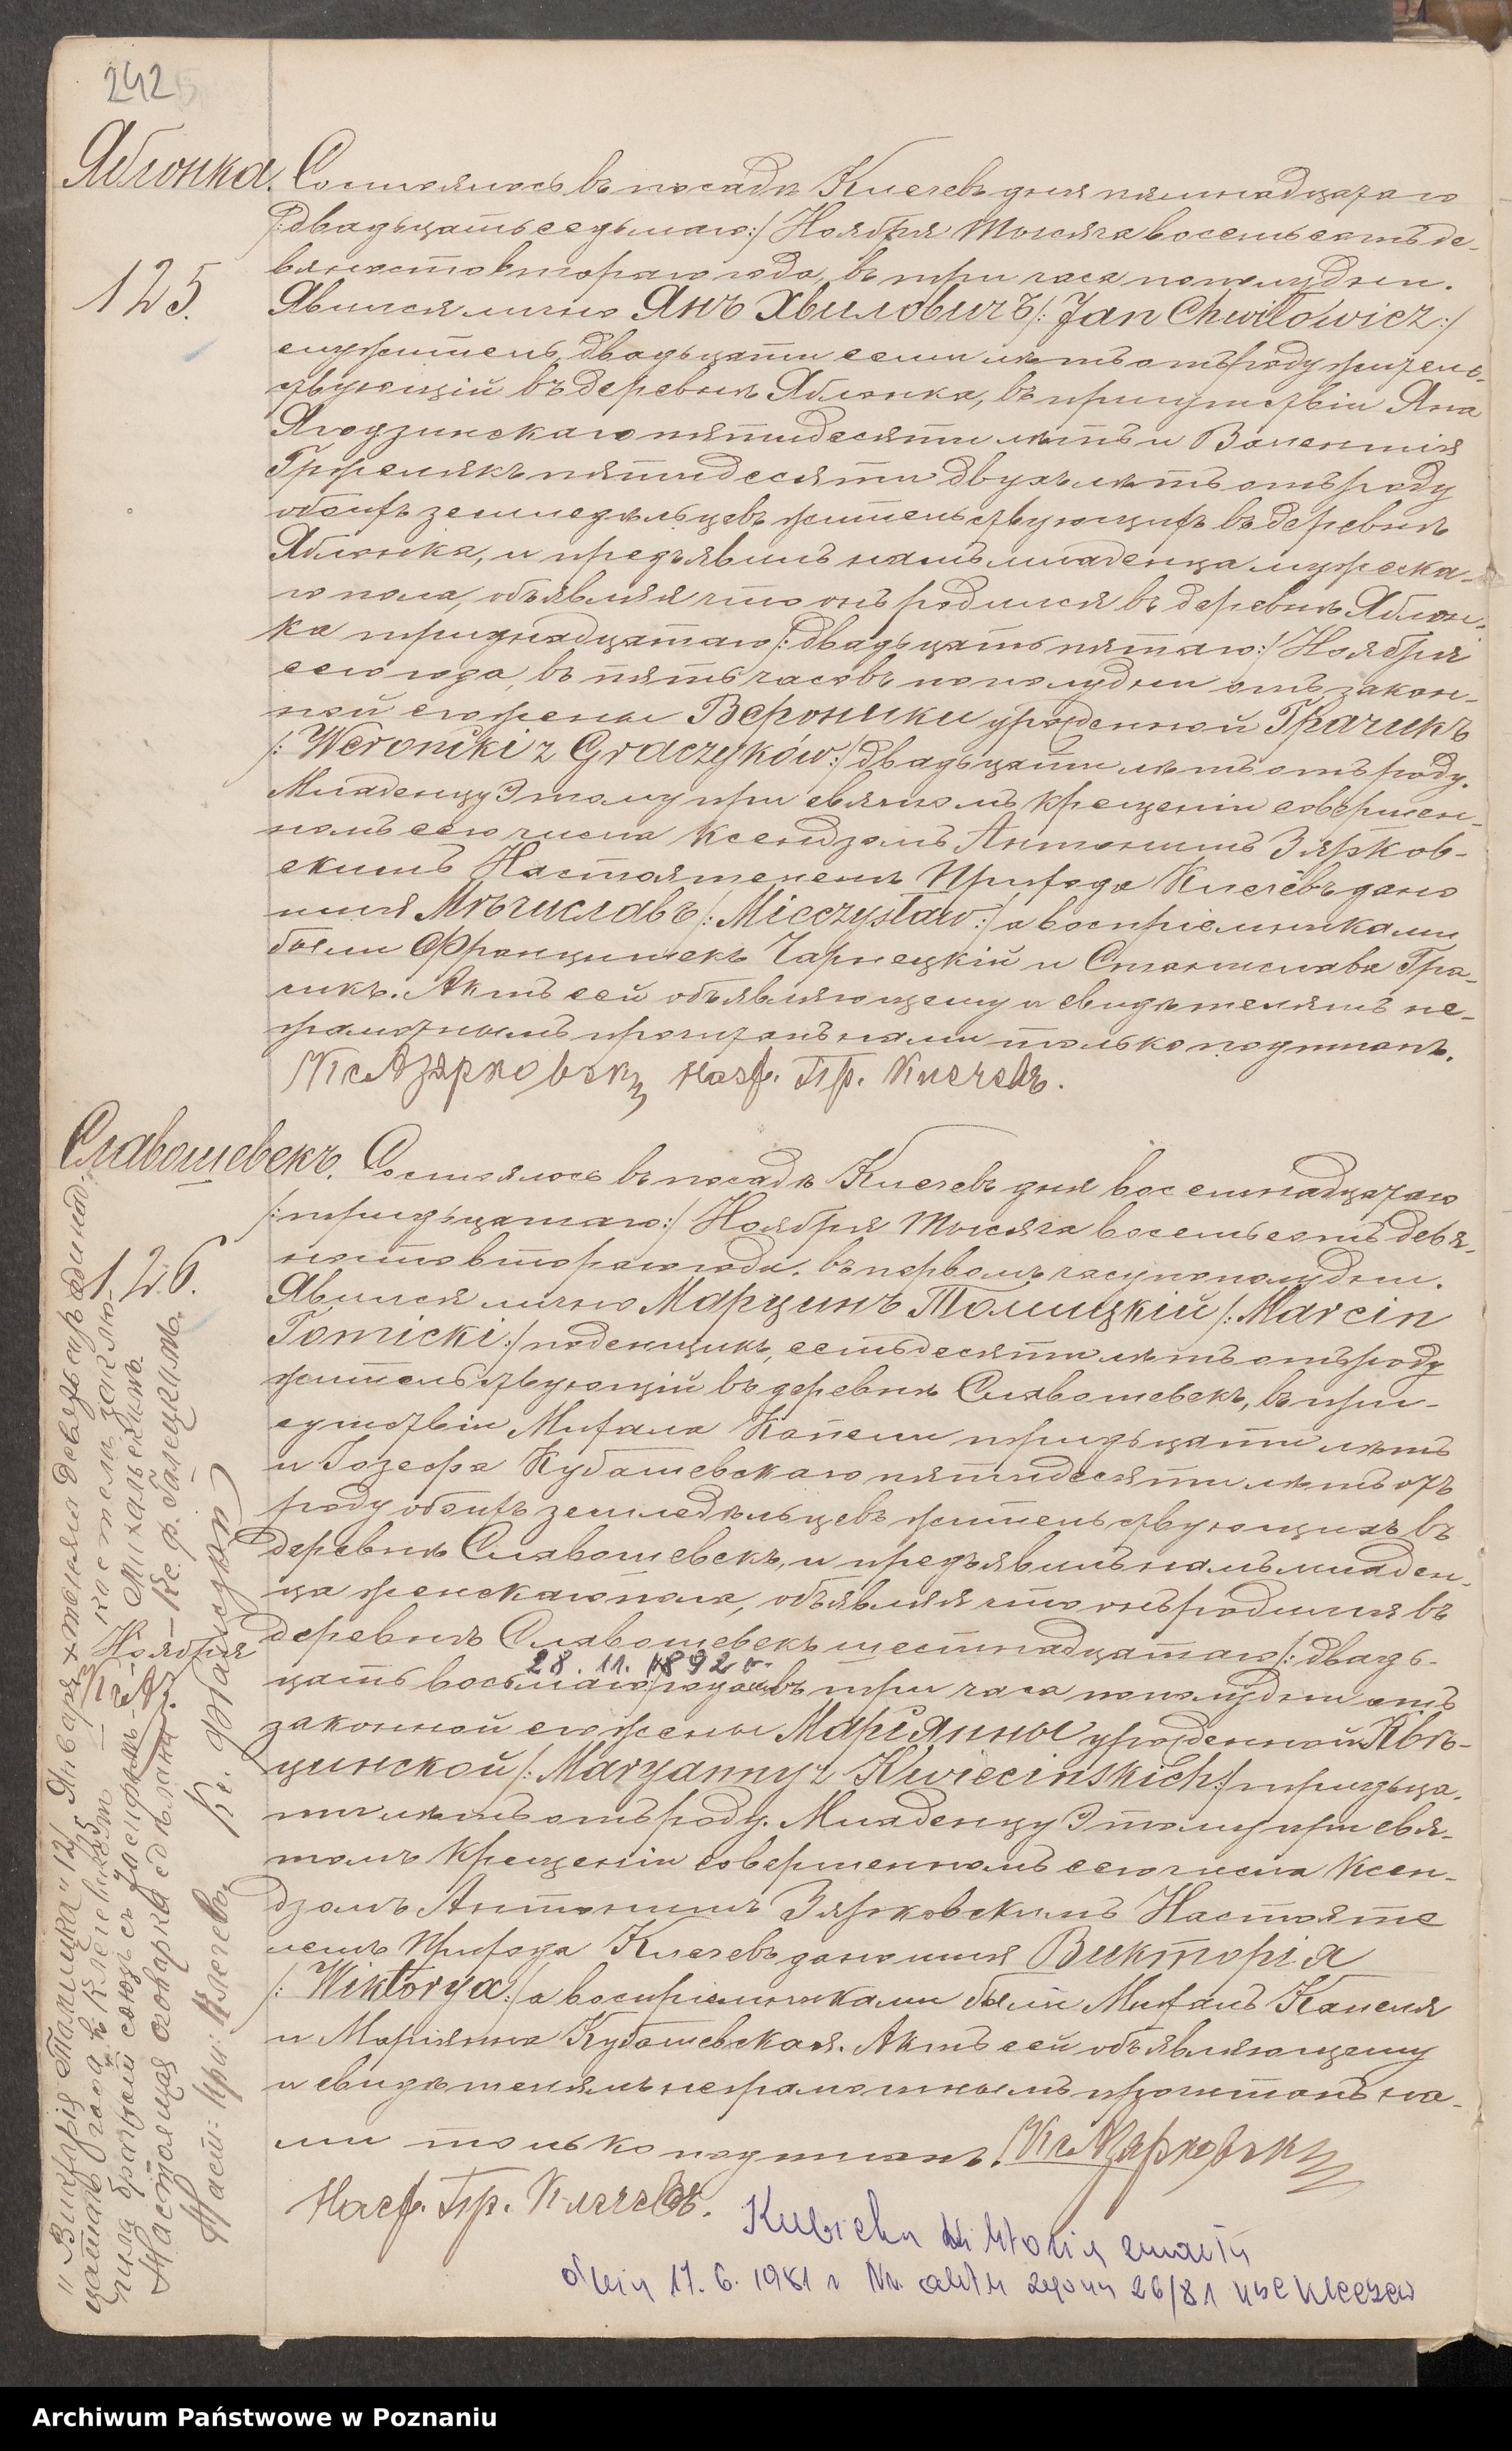 242
Яблонка.
125.
Состоялось въ посадѣ Клечевъ дня пятнадцатаго
/:двадцать седьмаго:/ Ноября Тысяча восемьсотъ де-
вяносто втораго года, въ три часа пополудни.
Явился лично Янъ Хвиловичъ /:Jan Chwiłowicz:/
служитель, двадцати семи лѣтъ отъ роду житель-
ствующій въ деревнѣ Яблонка, въ присутствіи Яна
Ягодзинскаго пятидесяти лѣтъ и Валентія
пятидесяти двухъ лѣтъ отъ роду
обоихъ земледѣльцевъ жительствующихъ въ деревнѣ
Яблонка, и предъявилъ намъ младенца мужеска-
го пола, объявляя что онъ родился въ деревнѣ Яблон-
ка тринадцатаго /:двадцать пятаго:/ Ноября
сего года, въ пять часовъ пополудни отъ закон-
ной его жены Вероники урожденной Грачикъ
/:Weroniki z Graczyków:/ двадцати лѣтъ отъ роду.
Младенцу Этому при святомъ крещеніи совершен-
номъ сего числа Ксендзомъ Антонимъ Зярков-
скимъ Настоятелемъ Прихода Клечевъ дано
имя Мѣчиславъ /:Mieczysław:/ а воспріемниками
были Францишекъ Чарнецкій и Станислава Гра-
чикъ. Актъ сей объявляющему и свидѣтелямъ не-
грамотнымъ прочитанъ нами только подписанъ.
Кс А Зярковски Наст. Пр. Клечевъ.
Славошевекъ.
126.
Состоялось въ посадѣ Клечевъ дня восемнадцатаго
/:тридцатаго:/ Ноября Тысяча восемьсотъ девя-
носто втораго года, въ первомъ часу пополудни.
Явился лично Марцинъ Томицкій /:Marcin
Tomicki:/ поденщикъ, семьдесяти лѣтъ отъ роду
жительствующій въ деревнѣ Славошевекъ, въ при-
сутствіи Михала Капели тридцати лѣтъ
и Іозефа Кубашевскаго пятидесяти лѣтъ отъ
роду обоихъ земледѣльцевъ жительствующихъ въ
деревнѣ Славошевекъ, и предъявилъ намъ младен-
ца женскаго пола, объявляя что онъ родился въ
деревнѣ Славошевекъ шестнадцатаго /:двадь-
28. 11. 1892 r.
цать восьмаго:/ года въ три часа пополудни отъ
Ноября
законной его жены Маріянны урожденной Квѣ-
цинской /:Maryanny z Kwiecinskich:/ тридца-
ти лѣтъ отъ роду. Младенцу Этому при свя-
томъ Крещеніи совершенномъ сего числа Ксен-
дзомъ Антонимъ Зярковскимъ Настояте
лемъ Прихода Клечевъ дано имя Викторія
/:Wiktorya:/ а воспріемниками были Михалъ Капеля
и Маріянна Кубашевская. Актъ сей объявляющему
и свидѣтелямъ неграмотнымъ прочитанъ на-
ми только подписанъ. Кс А Зярковски
Наст. Пр. Клечевъ.
Kubicka Wiktoria zmarła
dnia 17. 6. 1981 r Nr. aktu zgonu 26/81 USC Kleczew
"Викторія Томицка" 12/25 Января тысяча девятьсотъ одинад-
цатаго года въ Клечевскомъ костелѣ заклю-
чила брачный союзъ съ Іосифомъ Михальскимъ.
Настоящая оговорка сдѣлана Кс. Ф. Галецкимъ.
Наст. При: Клечевъ, Кс.
Archiwum Państwowe w Poznaniu